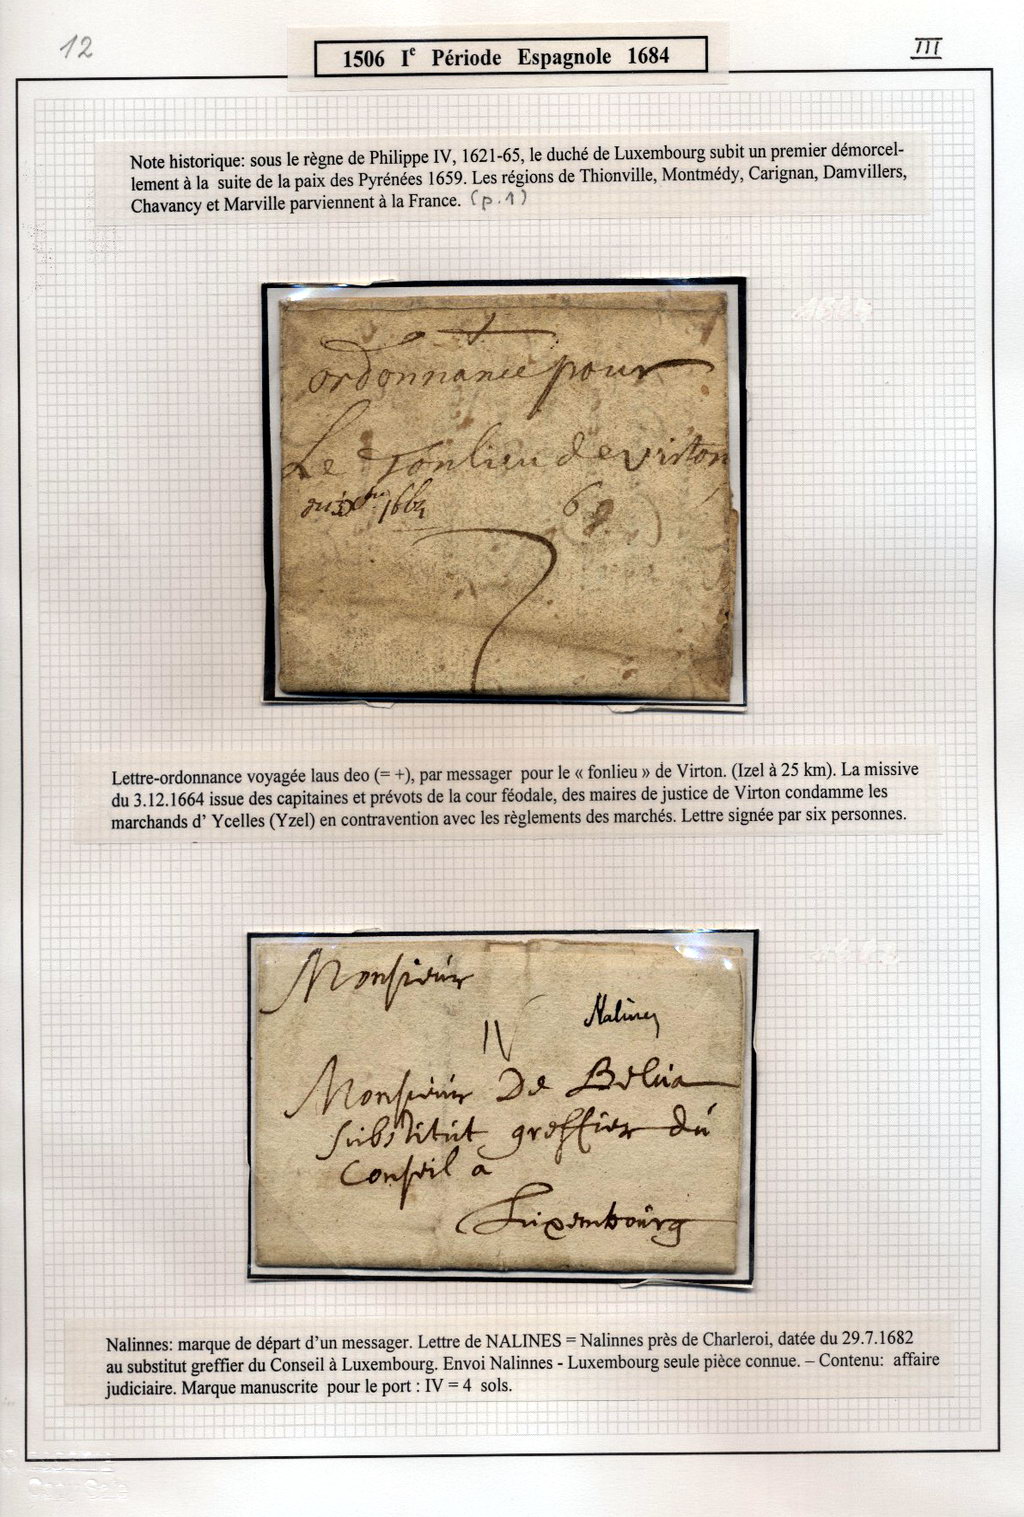 12
1506 Ie Période Espagnole 1684
III
Note historique: sous le règne de Philippe IV, 1621-65, le duché de Luxembourg subit un premier démorcel-
lement à la suite de la paix des Pyrénées 1659. Les régions de Thionville, Montmédy, Carignan, Damvillers,
Chavancy et Marville parviennent à la France. (p.1)
ordonnance pour
Le Tonlieu de virton
1664
Lettre-ordonnance voyagée laus deo (= +), par messager pour le « fonlieu » de Virton. (Izel à 25 km). La missive
du 3.12.1664 issue des capitaines et prévots de la cour féodale, des maires de justice de Virton condamme les
marchands d' Ycelles (Yzel) en contravention avec les règlements des marchés. Lettre signée par six personnes.
Monsieur
Nalines
IV
Monsieur De Belua
substitut greffier du
Conseil a
Luxembourg
Nalinnes: marque de départ d'un messager. Lettre de NALINES = Nalinnes près de Charleroi, datée du 29.7.1682
au substitut greffier du Conseil à Luxembourg. Envoi Nalinnes - Luxembourg seule pièce connue. – Contenu: affaire
judiciaire. Marque manuscrite pour le port : IV = 4 sols.